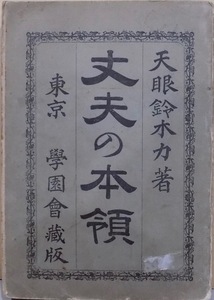 天眼鈴木力著
丈夫の本領
東京 學園會藏版